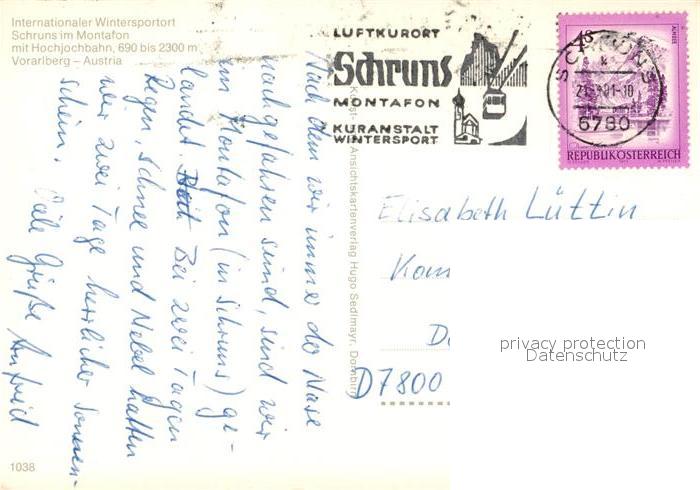 Internationaler Wintersportort
Schruns im Montafon
mit Hochjochbahn, 690 bis 2300 m
Vorarlberg – Austria
LUFTKURORT
Schruns
MONTAFON
KURANSTALT
WINTERSPORT
4S
SCHRUNS
6780
REPUBLIK ÖSTERREICH
Nach dem wir immer der Nase
nachgefahren sind, sind wir
im Montafon (in Schruns) ge-
landet. Bei zwei Tagen
Regen, Schnee und Nebel hatten
wir zwei Tage herrlicher Sonnen-
schein.
Viele Grüße
Kunst- Ansichtskartenverlag Hugo Sedlmayr, Dornbirn
Elisabeth Lüttin
D7800
privacy protection
Datenschutz
1038